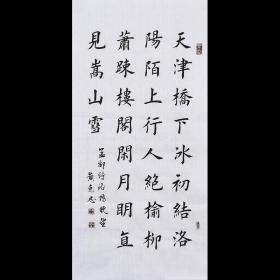 天津橋下冰初結洛
陽陌上行人絕榆柳
蕭踈樓閣閑月明直
見嵩山雪
孟郊詩洛橋晚望